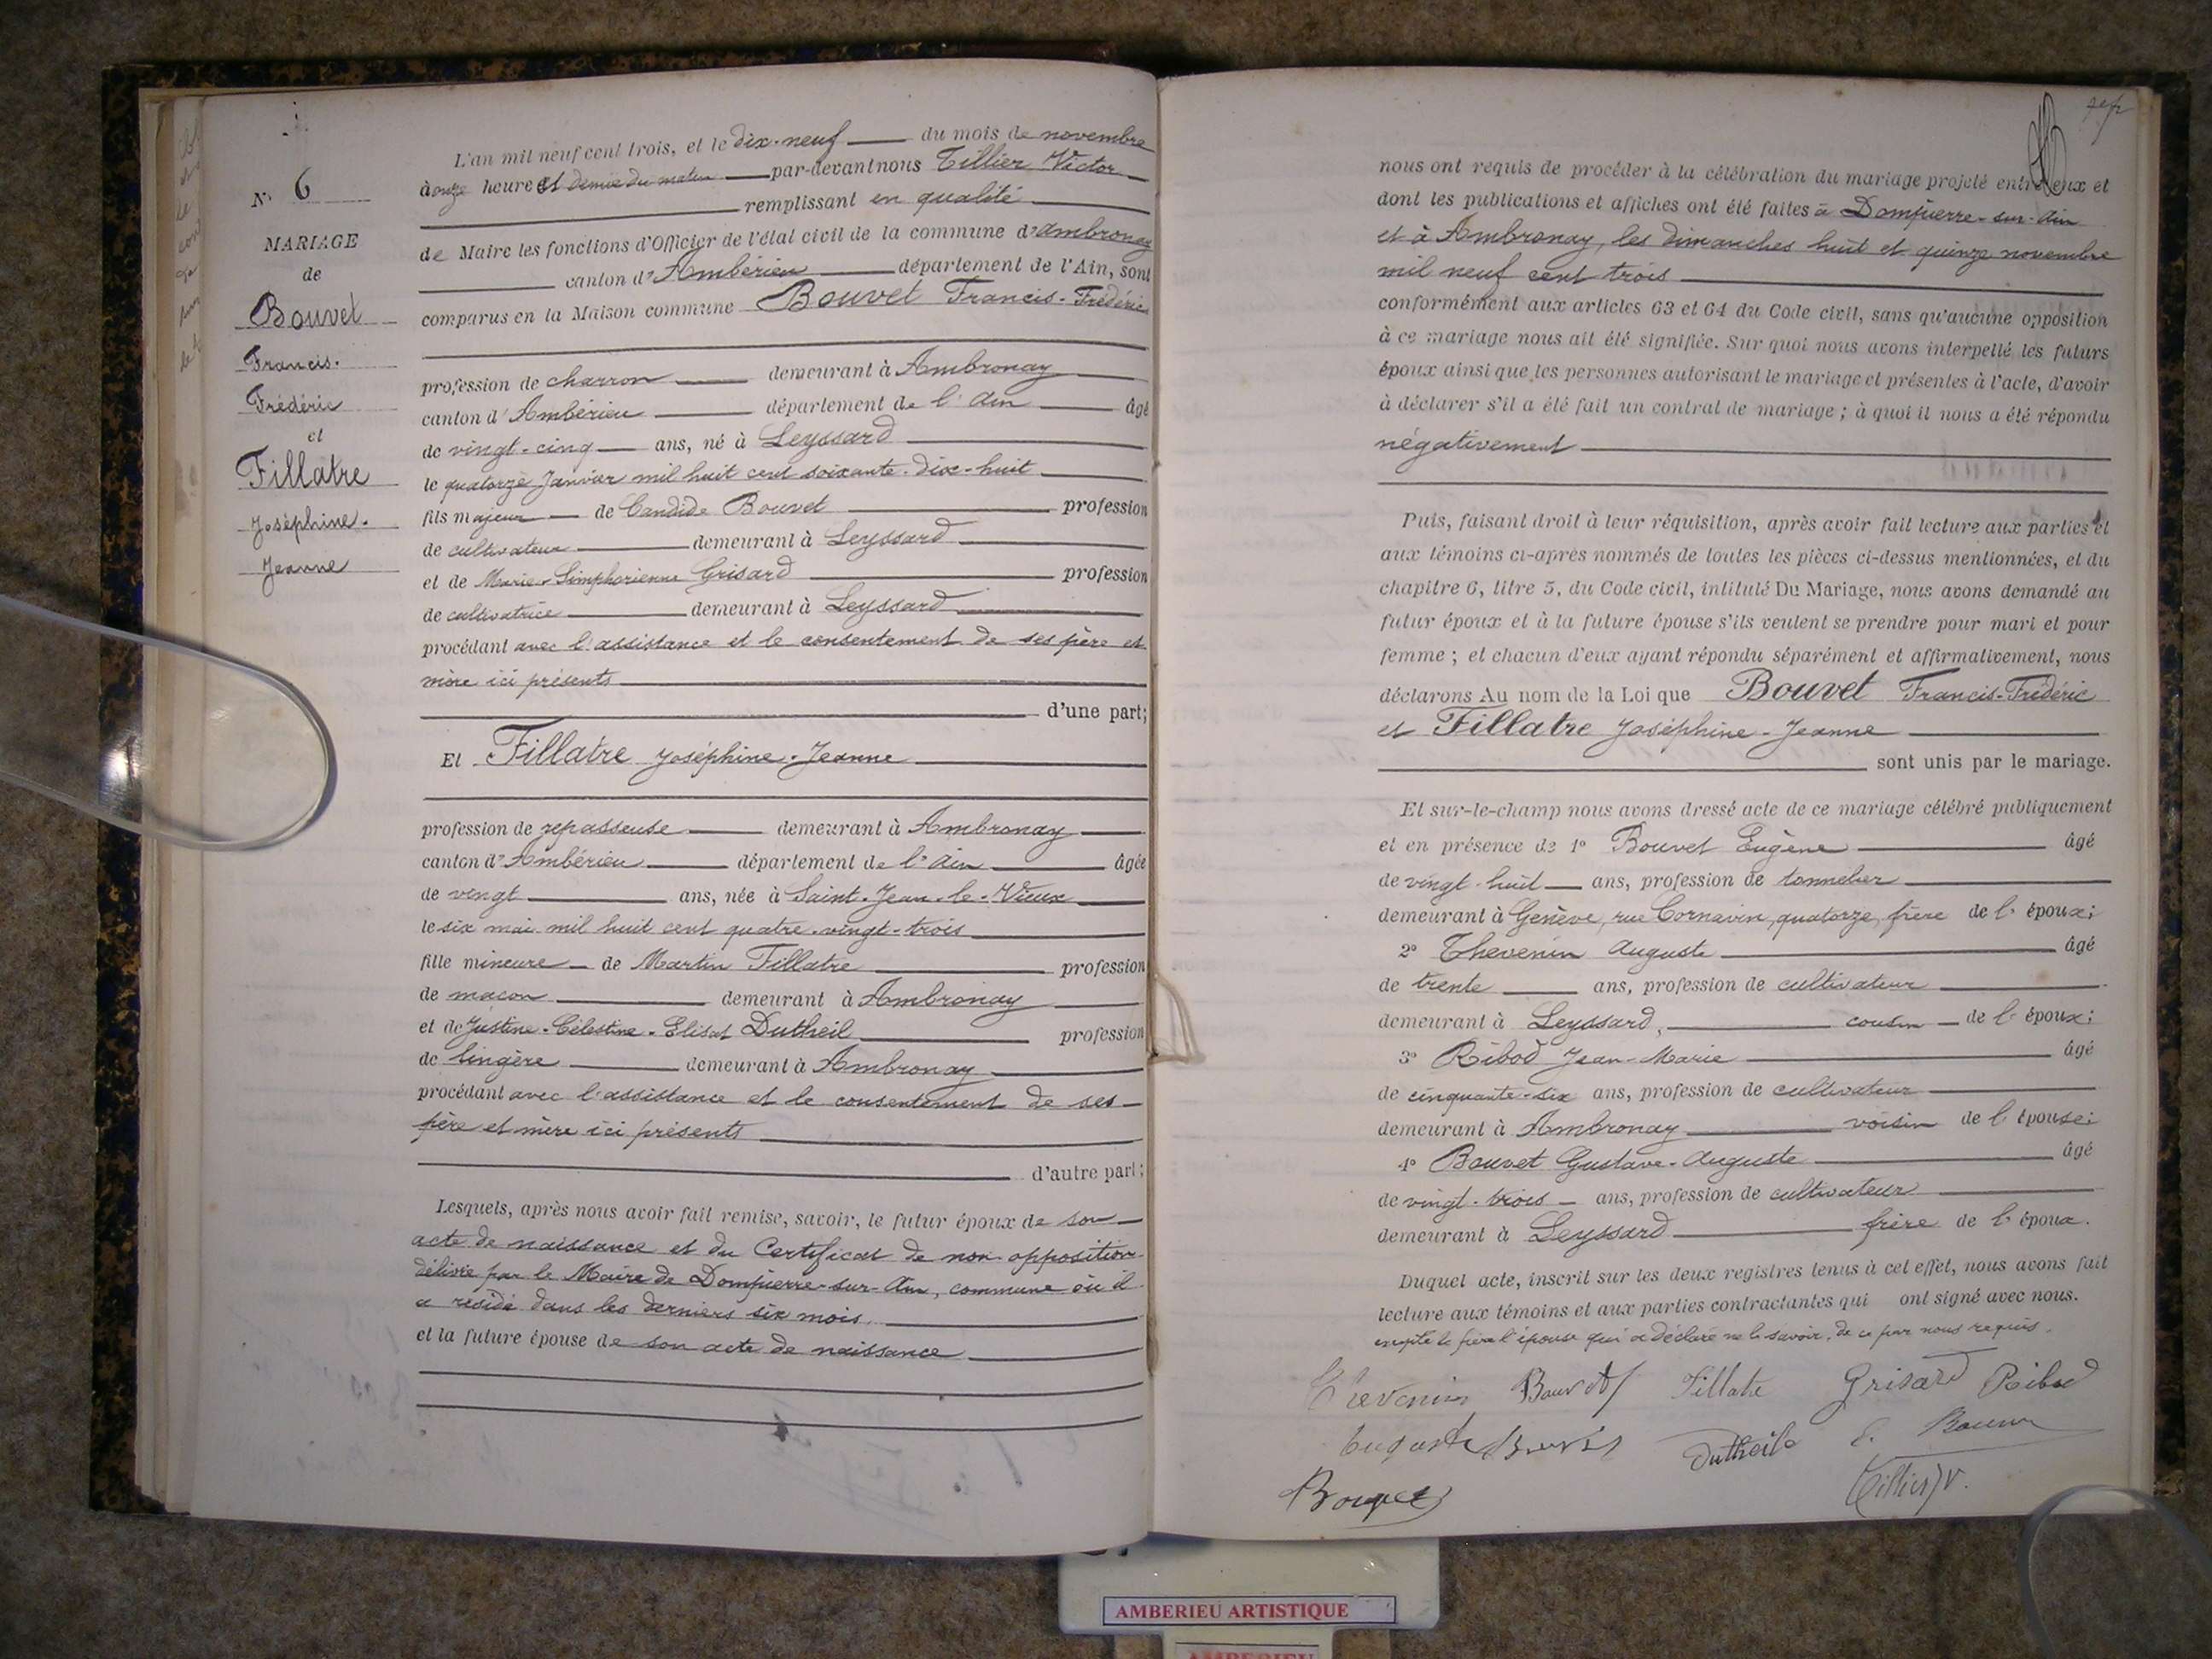 N° 6
MARIAGE
de
Bouvet
Francis-
Frédéric
et
Fillatre
Joséphine-
Jeanne
L'an mil neuf cent trois, et le dix-neuf du mois de novembre
à onze heures et demie du matin par-devant nous Tillier Victor
remplissant en qualité
de Maire les fonctions d'Officier de l'état civil de la commune d'Ambronay
canton d'Ambérieu département de l'Ain, sont
comparus en la Maison commune Bouvet Francis-Frédéric
profession de charron demeurant à Ambronay
canton d'Ambérieu département de l'Ain âgé
de vingt-cinq ans, né à Leyssard
le quatorze Janvier mil huit cent soixante-dix-huit
fils majeur de Candide Bouvet profession
de cultivateur demeurant à Leyssard
et de Marie-Simphorienne Grisard profession
de cultivatrice demeurant à Leyssard
procédant avec l'assistance et le consentement de ses père et
mère ici présents
d'une part;
Et Fillatre Joséphine-Jeanne
profession de repasseuse demeurant à Ambronay
canton d'Ambérieu département de l'Ain âgée
de vingt ans, née à Saint-Jean-le-Vieux
le six mai mil huit cent quatre-vingt-trois
fille mineure de Martin Fillatre profession
de macon demeurant à Ambronay
et de Justine-Célestine-Elisa Dutheil profession
de lingère demeurant à Ambronay
procédant avec l'assistance et le consentement de ses
père et mère ici présents
d'autre part;
Lesquels, après nous avoir fait remise, savoir, le futur époux de son
acte de naissance et du Certificat de non-opposition
délivré par le Maire de Dompierre-sur-Ain, commune où il
a résidé dans les derniers six mois
et la future épouse de son acte de naissance
nous ont requis de procéder à la célébration du mariage projeté entre eux et
dont les publications et affiches ont été faites à Dompierre-sur-Ain
et à Ambronay, les dimanches huit et quinze novembre
mil neuf cent trois
conformément aux articles 63 et 64 du Code civil, sans qu'aucune opposition
à ce mariage nous ait été signifiée. Sur quoi nous avons interpellé les futurs
époux ainsi que les personnes autorisant le mariage et présentes à l'acte, d'avoir
à déclarer s'il a été fait un contrat de mariage; à quoi il nous a été répondu
négativement
Puis, faisant droit à leur réquisition, après avoir fait lecture aux parties et
aux témoins ci-après nommés de toutes les pièces ci-dessus mentionnées, et du
chapitre 6, titre 5, du Code civil, intitulé Du Mariage, nous avons demandé au
futur époux et à la future épouse s'ils veulent se prendre pour mari et pour
femme; et chacun d'eux ayant répondu séparément et affirmativement, nous
déclarons Au nom de la Loi que Bouvet Francis-Frédéric
et Fillatre Joséphine-Jeanne
sont unis par le mariage.
Et sur-le-champ nous avons dressé acte de ce mariage célébré publiquement
et en présence de 1° Bouvet Eugène âgé
de vingt-huit ans, profession de tonnelier
demeurant à Genève, rue Cornavin, quatorze, frère de l'époux;
2° Thevenin Auguste âgé
de trente ans, profession de cultivateur
demeurant à Leyssard, cousin de l'époux;
3° Ribod Jean-Marie âgé
de cinquante-six ans, profession de cultivateur
demeurant à Ambronay voisin de l'épouse;
4° Bouvet Gustave-Auguste âgé
de vingt-trois ans, profession de cultivateur
demeurant à Leyssard frère de l'époux.
Duquel acte, inscrit sur les deux registres tenus à cet effet, nous avons fait
lecture aux témoins et aux parties contractantes qui ont signé avec nous.
excepté le père de l'épouse qui a déclaré ne le savoir, de ce par nous requis.
Thevenin Bouvet f Fillatre Grisard Ribod
Auguste Bouvet Dutheil E. Bouvet
Bouvet Tillier V.
AMBERIEU ARTISTIQUE
AMBERIEU